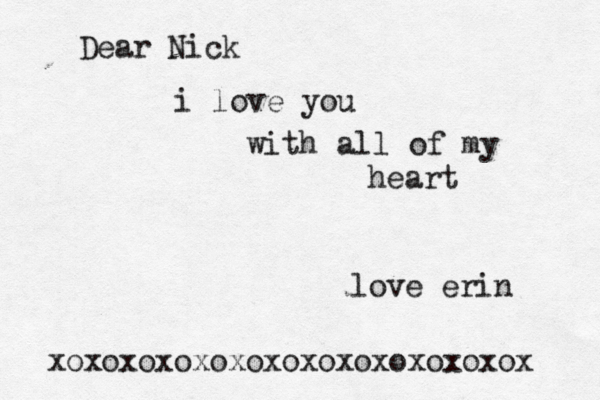 Dear Nick
i love you
with all of my
heart
love erin
xoxoxoxoxoxoxoxoxoxoxoxoxox